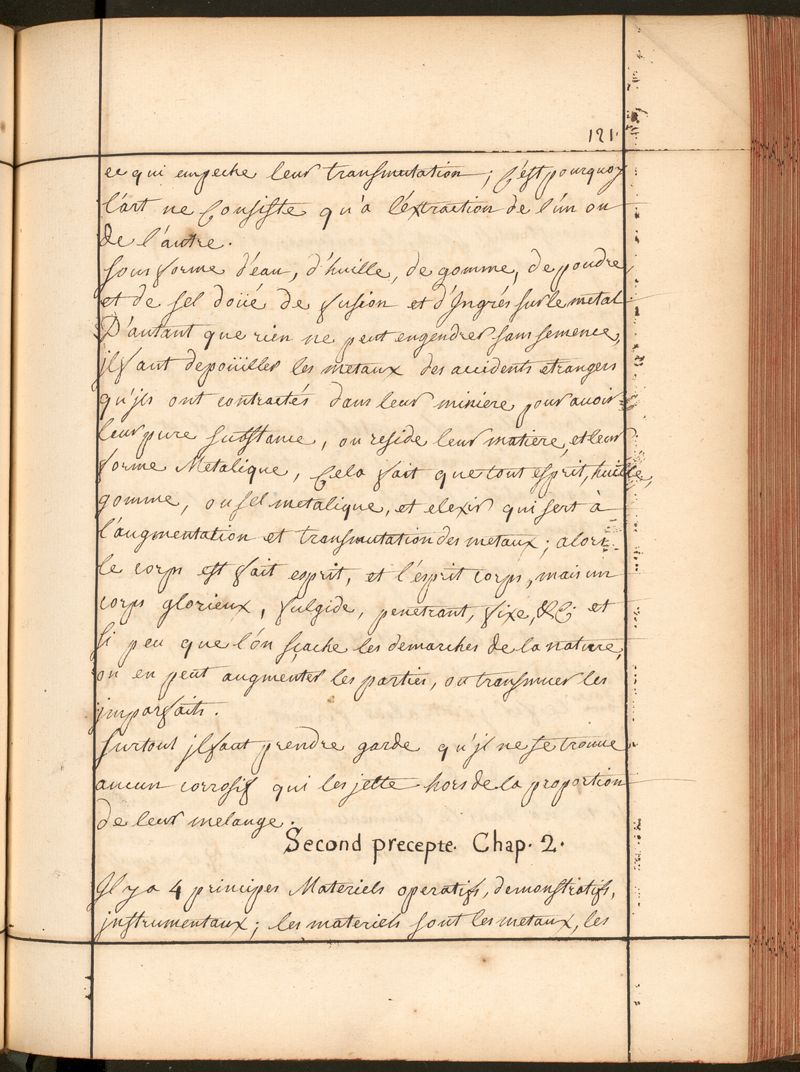 121.
ce qui empeche leur transmutation; C'est pourquoy
l'art ne Consiste qu'a l'éxtraction de l'ún ou
de l'autre.
Sous forme d'eau, d'huille, de gomme, de poudre
et de sel doüé de fusion et d'Ingrés sur le metal
D'autant que rien ne peut engendrer sans semence,
jl faut depoüiller les metaux des accidents etrangers
qu'jls ont contractés dans leur miniere pour avoir
leur pure substance, ou reside leur matiere, et leur
forme Metalique, Cela fait que tout esprit, huille,
gomme, ou sel metalique, et elexir qui sert à
l'augmentation et transmutation des metaux; alors
le corps est fait esprit, et l'esprit corps, mais un
corps glorieux, fulgide, penetrant, fixe, &C. et
si peu que l'ón sçache les demarches de la nature,
on en peut augmenter les parties, ou transmuer les
jmparfaits.
Surtout jl faut prendre garde qu'jl ne se trouve
aucun corrosif qui les jette hors de la proportion
de leur melange.
Second precepte. Chap. 2.
Il y a 4 principes Materiels operatifs, demonstratifs,
jnstrumentaux; les materiels sont les metaux, les